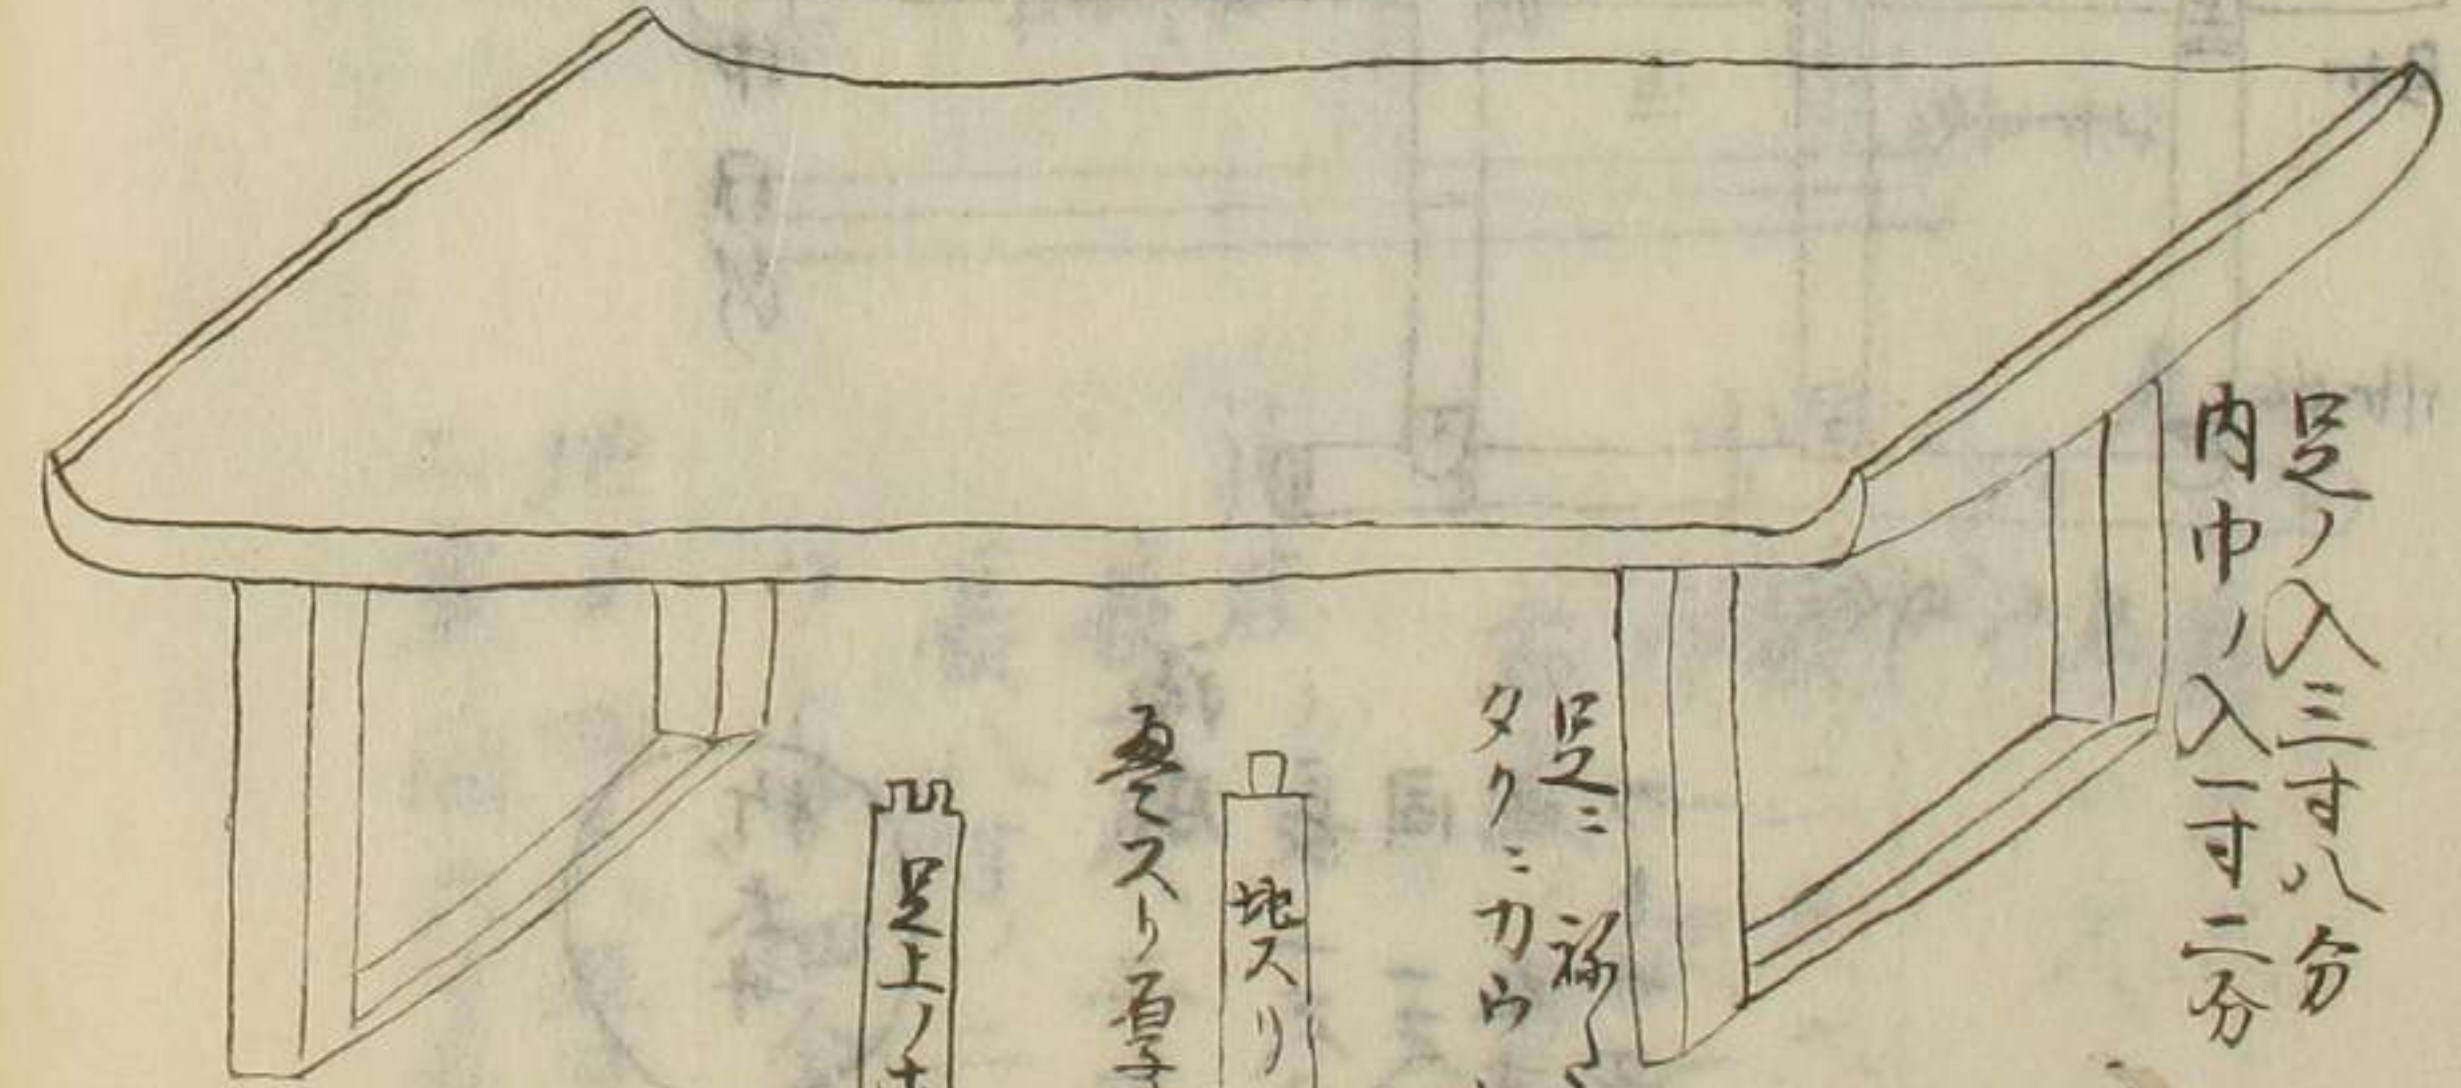 足ノ入三寸八分
内巾ノ入一寸二分
足ニ
タクニカウ
地スリ
スリ
足上ノ